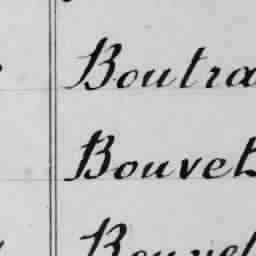 Boutra
Bouvet
Bouvet